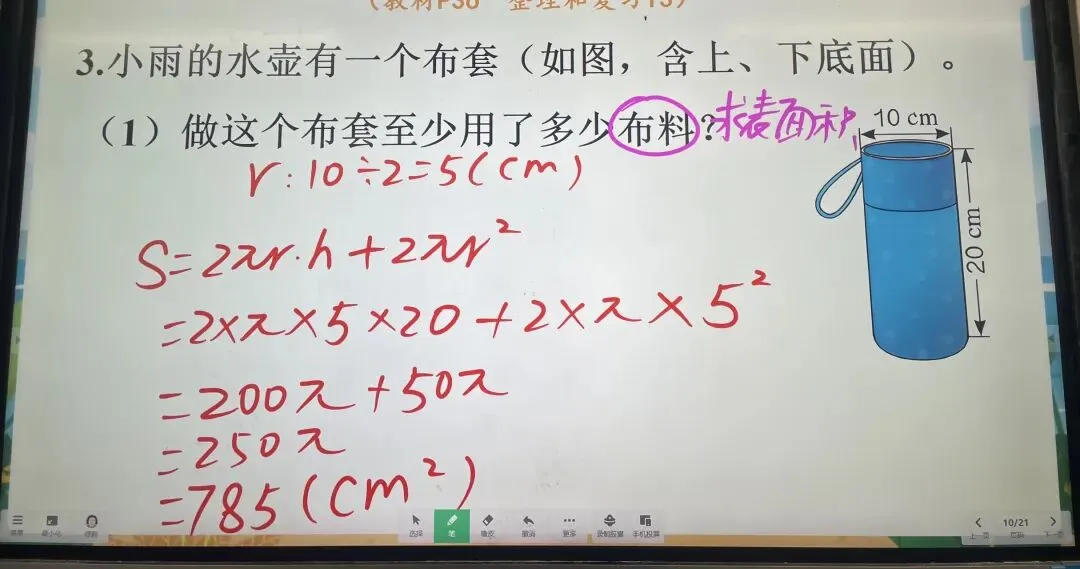 (教材P36 整理和复习T3)
3.小雨的水壶有一个布套(如图,含上、下底面)。
(1)做这个布套至少用了多少布料?求表面积
10 cm
20 cm
r:10÷2=5(cm)
S=2πr·h+2πr²
=2×π×5×20+2×π×5²
=200π+50π
=250π
=785(cm²)
选择 笔 橡皮 撤消 更多 手机投屏
10/21
上一页 页码 下一页